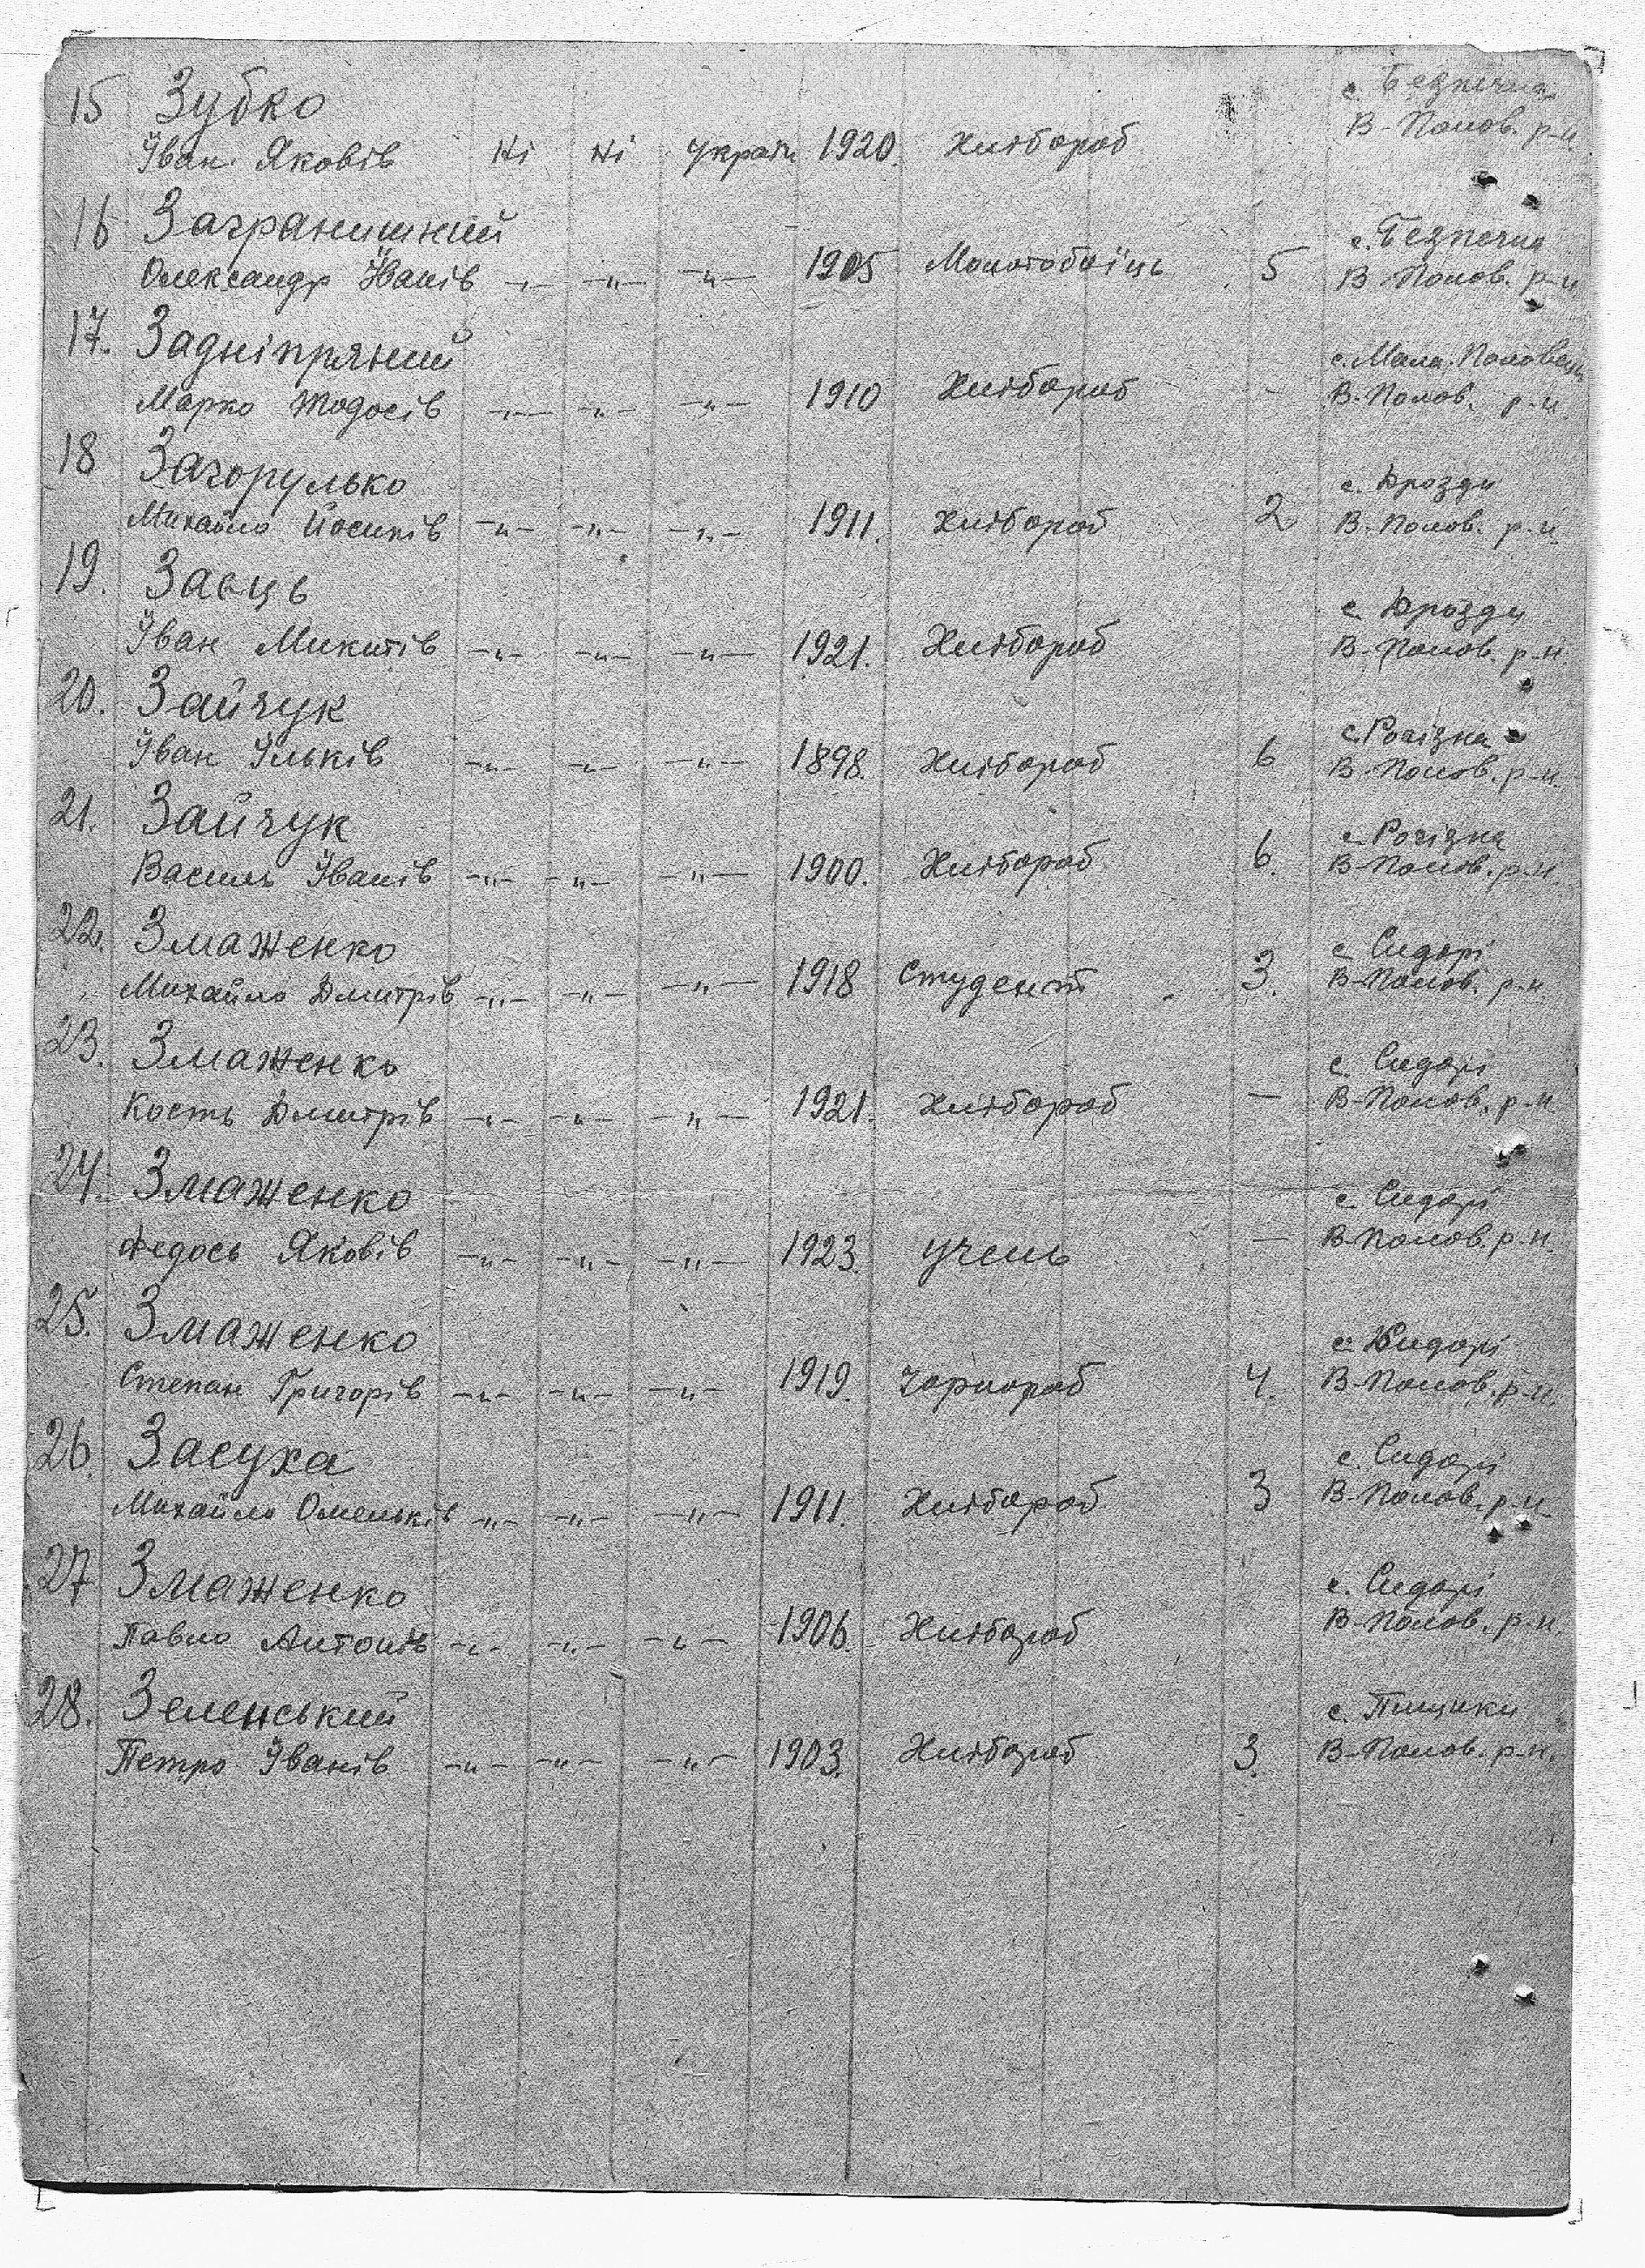 15 Зубко с. Безпечна
Іван Яковів Ні Ні україн 1920. Хлібороб В-Полов. р-н
16 Загранишний с. Безпечна
Олександр Іванів -"- -"- -"- 1905 Молотобоїць 5 В-Полов. р-н.
17. Задніпряний с. Мала-Половець
Марко Тодосів -"- -"- -"- 1910 Хлібороб - В-Полов. р-н.
18 Загорулько с. Дрозди
Михайло Йосипів -"- -"- -"- 1911. Хлібороб 2 В-Полов. р-н.
19. Заєць с. Дрозди
Іван Микитів -"- -"- -"- 1921. Хлібороб В-Полов. р-н.
20. Зайчук с. Рогізна
Іван Ільків -"- -"- -"- 1898. Хлібороб 6 В-Полов. р-н.
21. Зайчук с. Рогізна
Василь Іванів -"- -"- -"- 1900. Хлібороб 6. В-Полов. р-н.
22. Змаженко с. Сидорі
Михайло Дмитрів -"- -"- -"- 1918 Студент 3. В-Полов. р-н.
23. Змаженко с. Сидорі
Кость Дмитрів -"- -"- -"- 1921. Хлібороб — В-Полов. р-н
24. Змаженко с. Сидорі
Федось Яковів -"- -"- -"- 1923. учень — В-Полов. р-н.
25. Змаженко с. Сидорі
Степан Григорів -"- -"- -"- 1919. Чорнороб 4. В-Полов. р-н.
26. Засуха с. Сидорі
Михайло Омельків -"- -"- -"- 1911. Хлібороб 3 В-Полов. р-н.
27 Змаженко с. Сидорі
Павло Антонів -"- -"- -"- 1906. Хлібороб В-Полов. р-н.
28. Зеленський с. Пищики
Петро Іванів -"- -"- -"- 1903. Хлібороб 3. В-Полов. р-н.